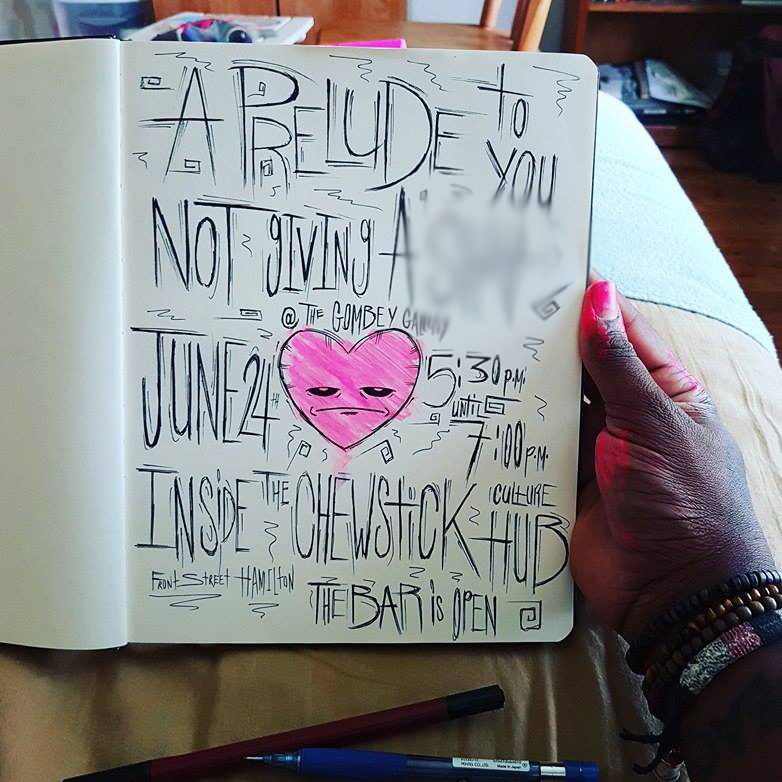 A PRELUDE to YOU
NOT giViNg A
@ THE GOMBEY GALLERY
JUNE 24TH 5:30 p.m. UNTIL 7:00 p.m.
INSiDE THE CHEWStiCK CULTURE HUB
FRONt StREEt HAMILTON
THE BAR iS OPEN